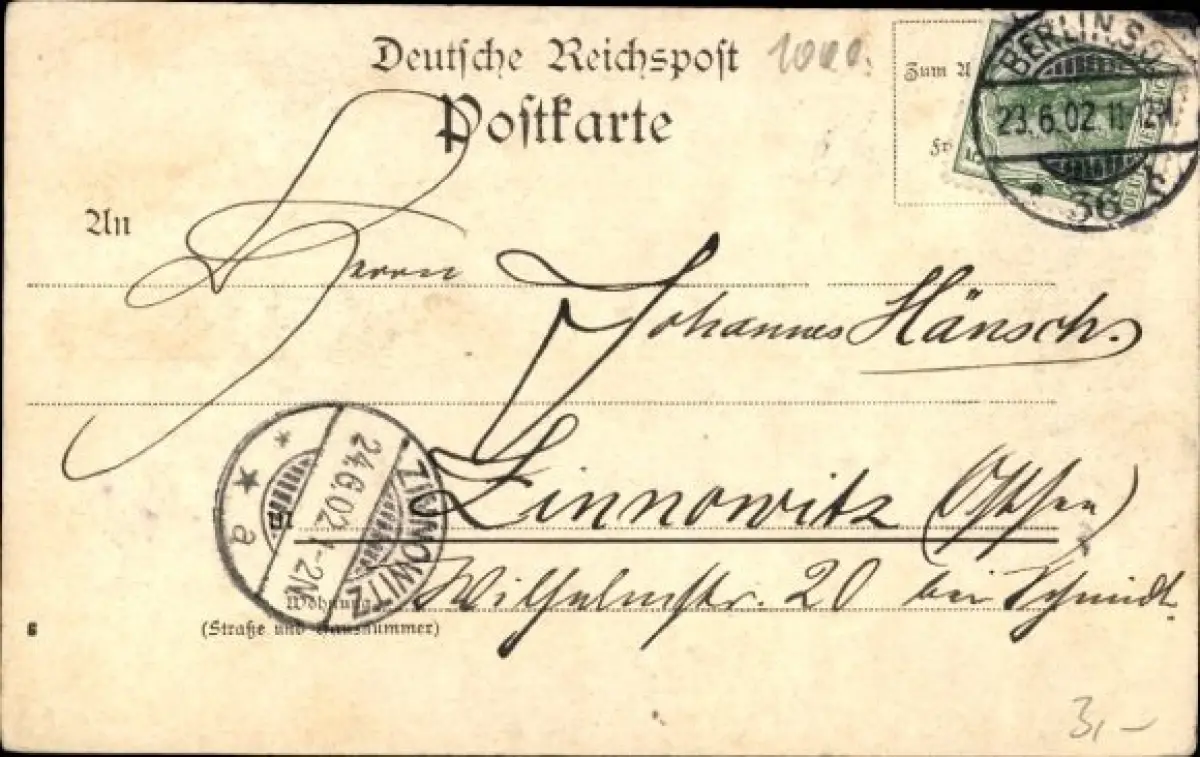 Deutsche Reichspost
1000.
Postkarte
Zum A
BERLIN.S.O.
23.6.02.11-12N.
36
5
An
Herrn
Johannes Hänsch.
in Zinnowitz (Ostsee)
ZINNOWITZ
24.6.02. 1-2N
a
Wilhelmstr. 20 bei Schmidt.
Wohnung
(Straße und Hausnummer)
6
3,-